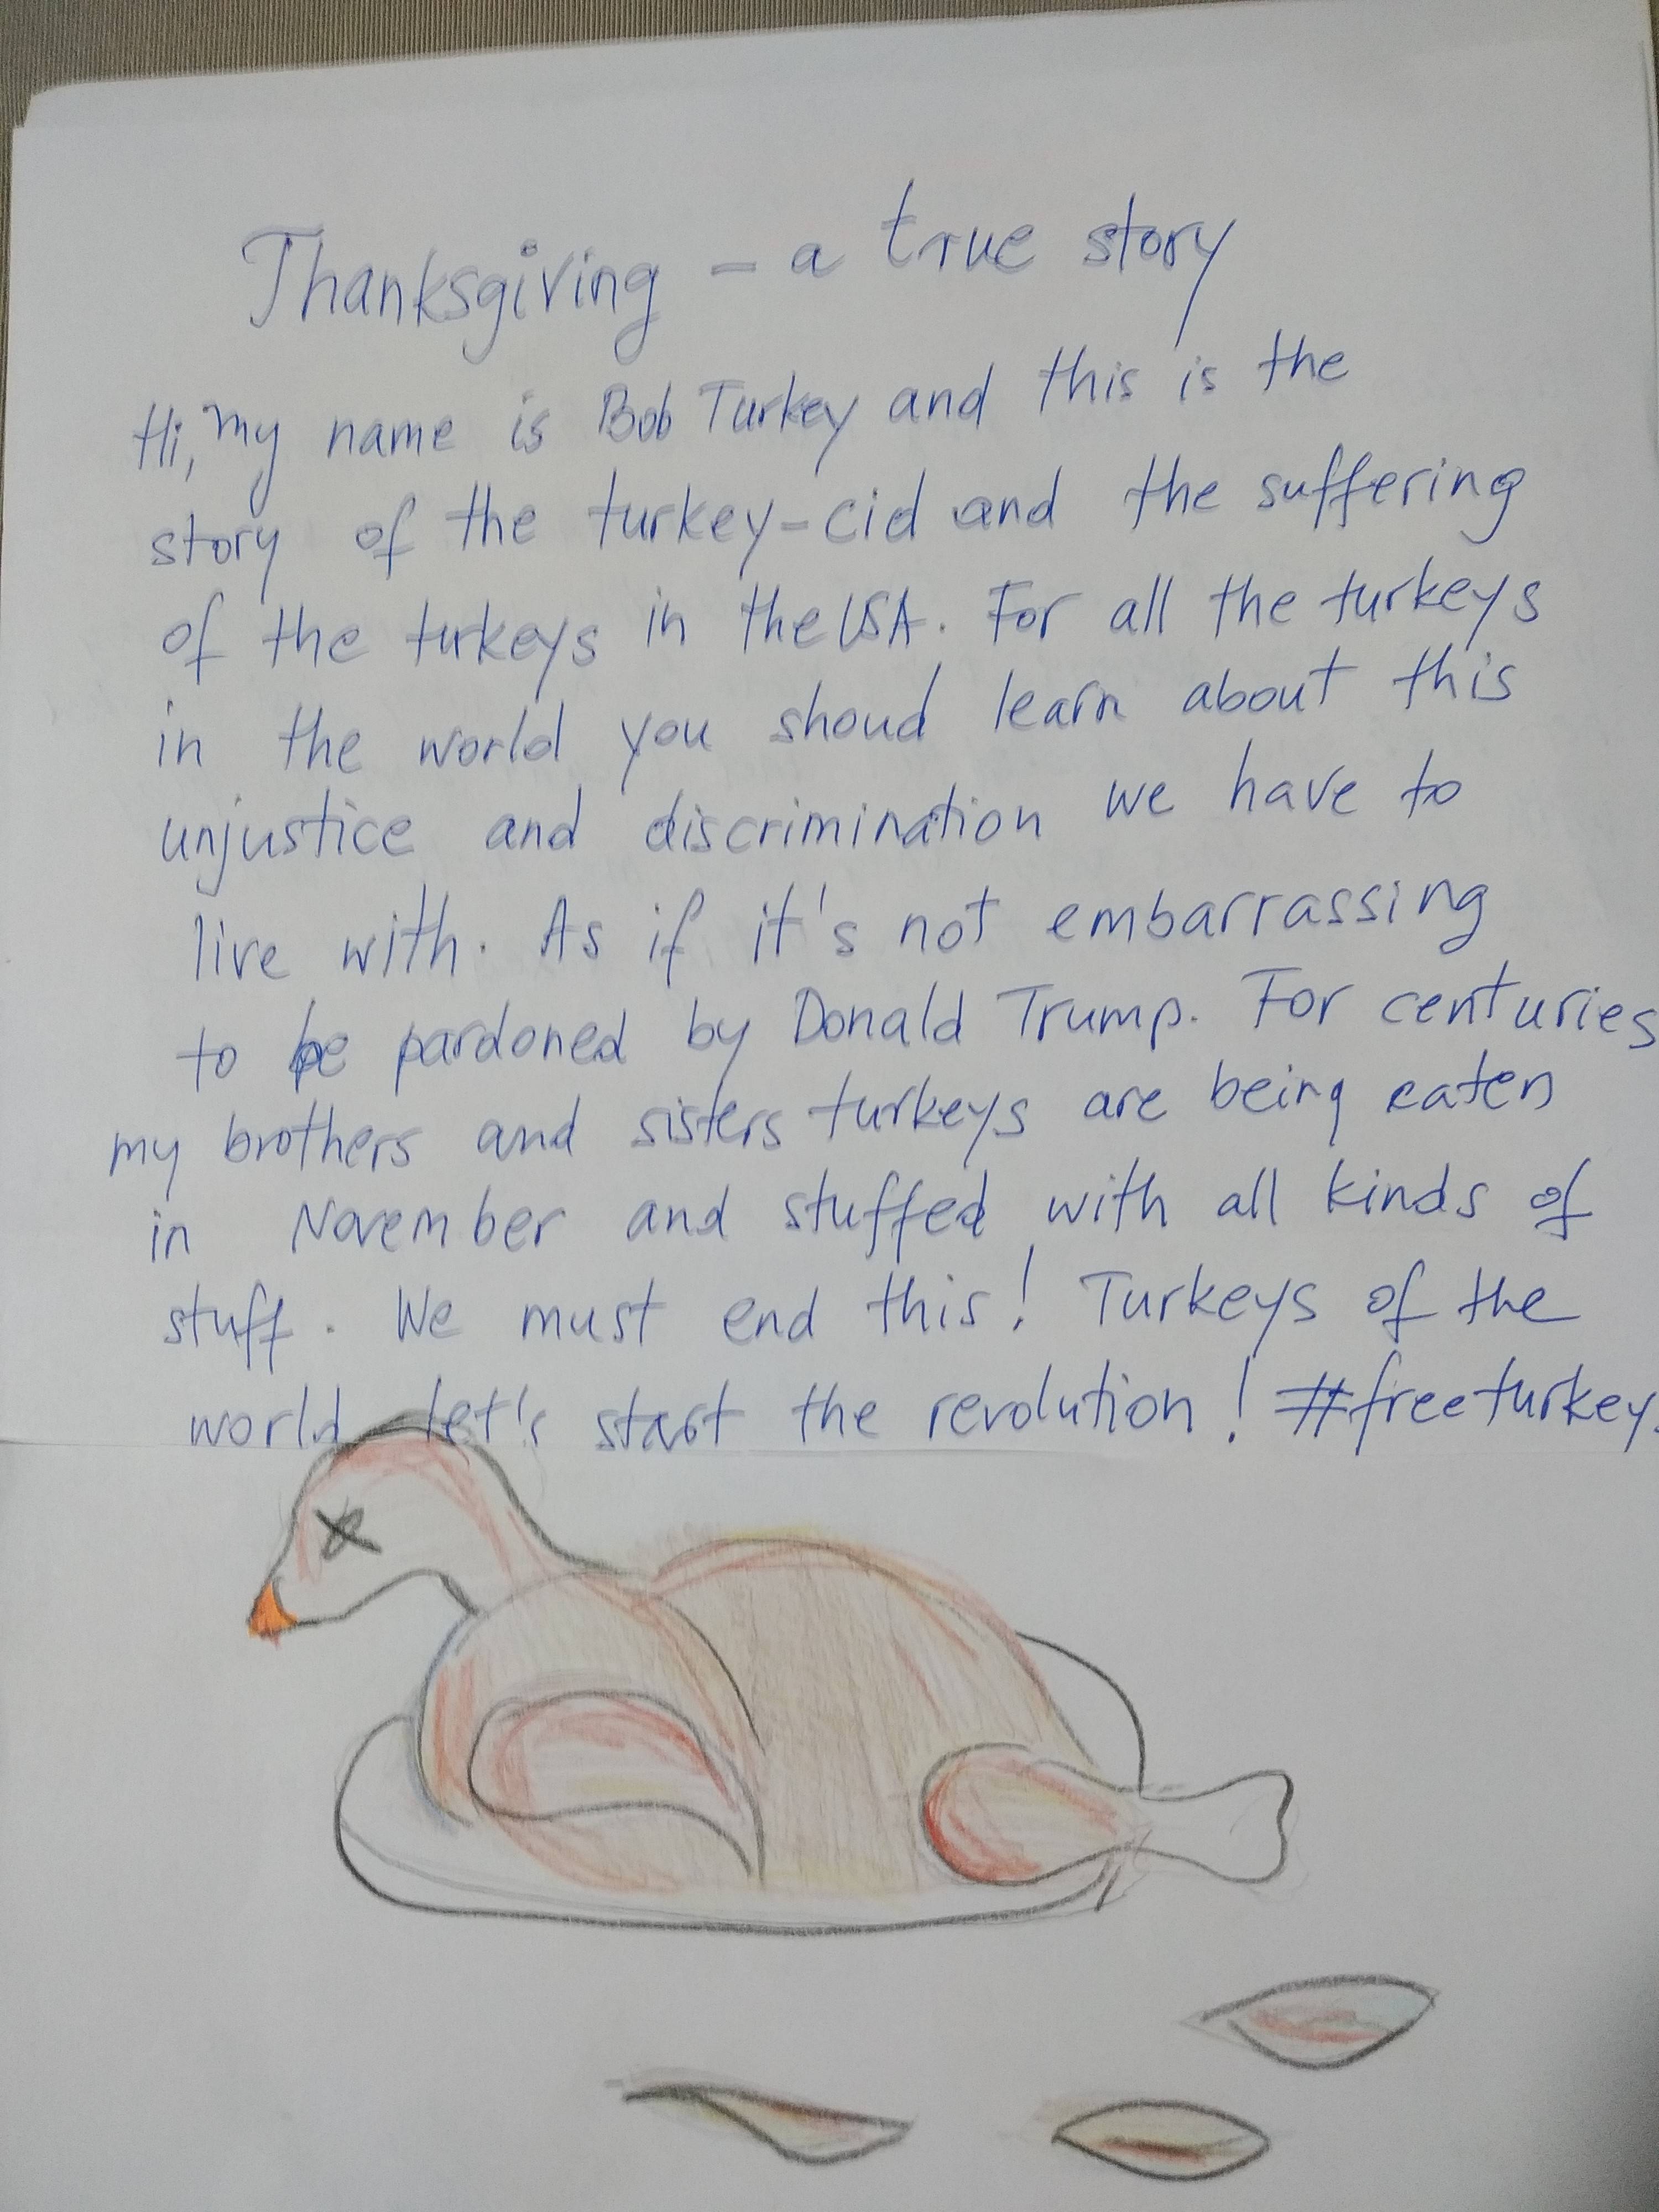 Thanksgiving - a true story
Hi, my name is Bob Turkey and this is the
story of the turkey-cid and the suffering
of the turkeys in the USA. For all the turkeys
in the world you shoud learn about this
unjustice and discrimination we have to
live with. As if it's not embarrassing
to be pardoned by Donald Trump. For centuries
my brothers and sisters turkeys are being eaten
in November and stuffed with all kinds of
stuff. We must end this! Turkeys of the
world let's start the revolution! #freeturkey